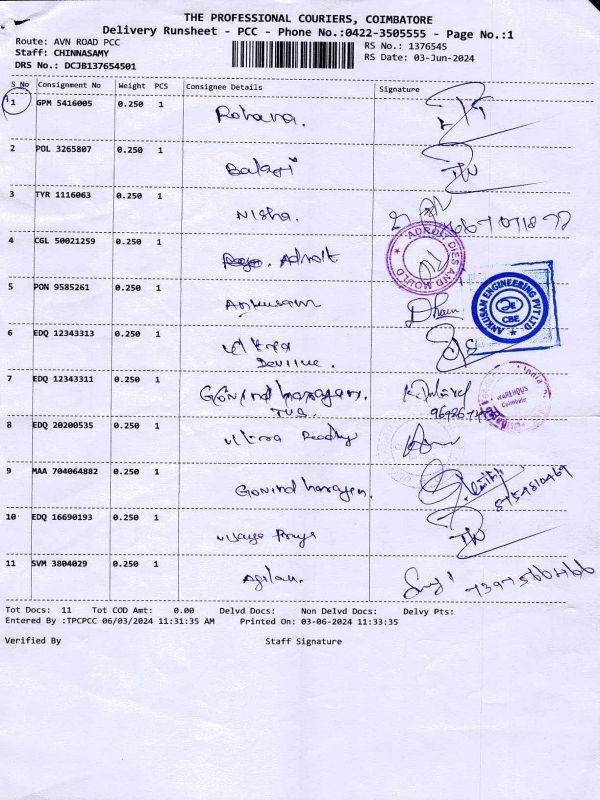 THE PROFESSIONAL COURIERS, COIMBATORE
Delivery Runsheet - PCC - Phone No.:0422-3505555 - Page No.:1
Route: AVN ROAD PCC
RS No.: 1376545
Staff: CHINNASAMY
RS Date: 03-Jun-2024
DRS No.: DCJB137654501
S No Consignment No Weight PCS Consignee Details Signature
1 GPM 5416005 0.250 1 Rohana.
2 POL 3265807 0.250 1 Balaji
3 TYR 1116063 0.250 1 Nisha.
4 CGL 50021259 0.250 1 Adroit
ADROIT DIES AND MOULD
5 PON 9585261 0.250 1 Dharn
ANKUSAN ENGINEERING PVT LTD
CBE
6 EDQ 12343313 0.250 1
7 EDQ 12343311 0.250 1 Govind narayan.
TVS.
8 EDQ 20200535 0.250 1 Ultra Ready
9 MAA 704064882 0.250 1 Govind narayan.
10 EDQ 16690193 0.250 1 Vijaya Priya
11 SVM 3804029 0.250 1 Agilan.
Tot Docs: 11 Tot COD Amt: 0.00 Delvd Docs: Non Delvd Docs: Delvy Pts:
Entered By :TPCPCC 06/03/2024 11:31:35 AM Printed On: 03-06-2024 11:33:35
Verified By Staff Signature